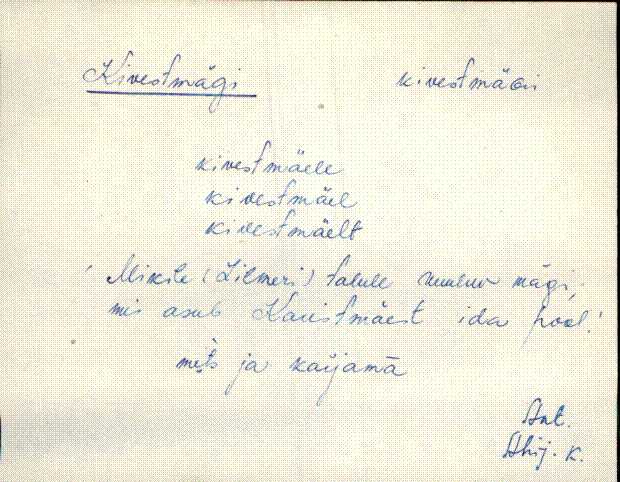 Kivestmägi kivestmäGi
kivestmäele
kivestmäel
kivestmäelt
' Mikile (Lilmeri) talule kuuluv mägi,
mis asub Karistmäest ida pool.'
mèts ja kaŕjamā
Ant.
Ahij. K.